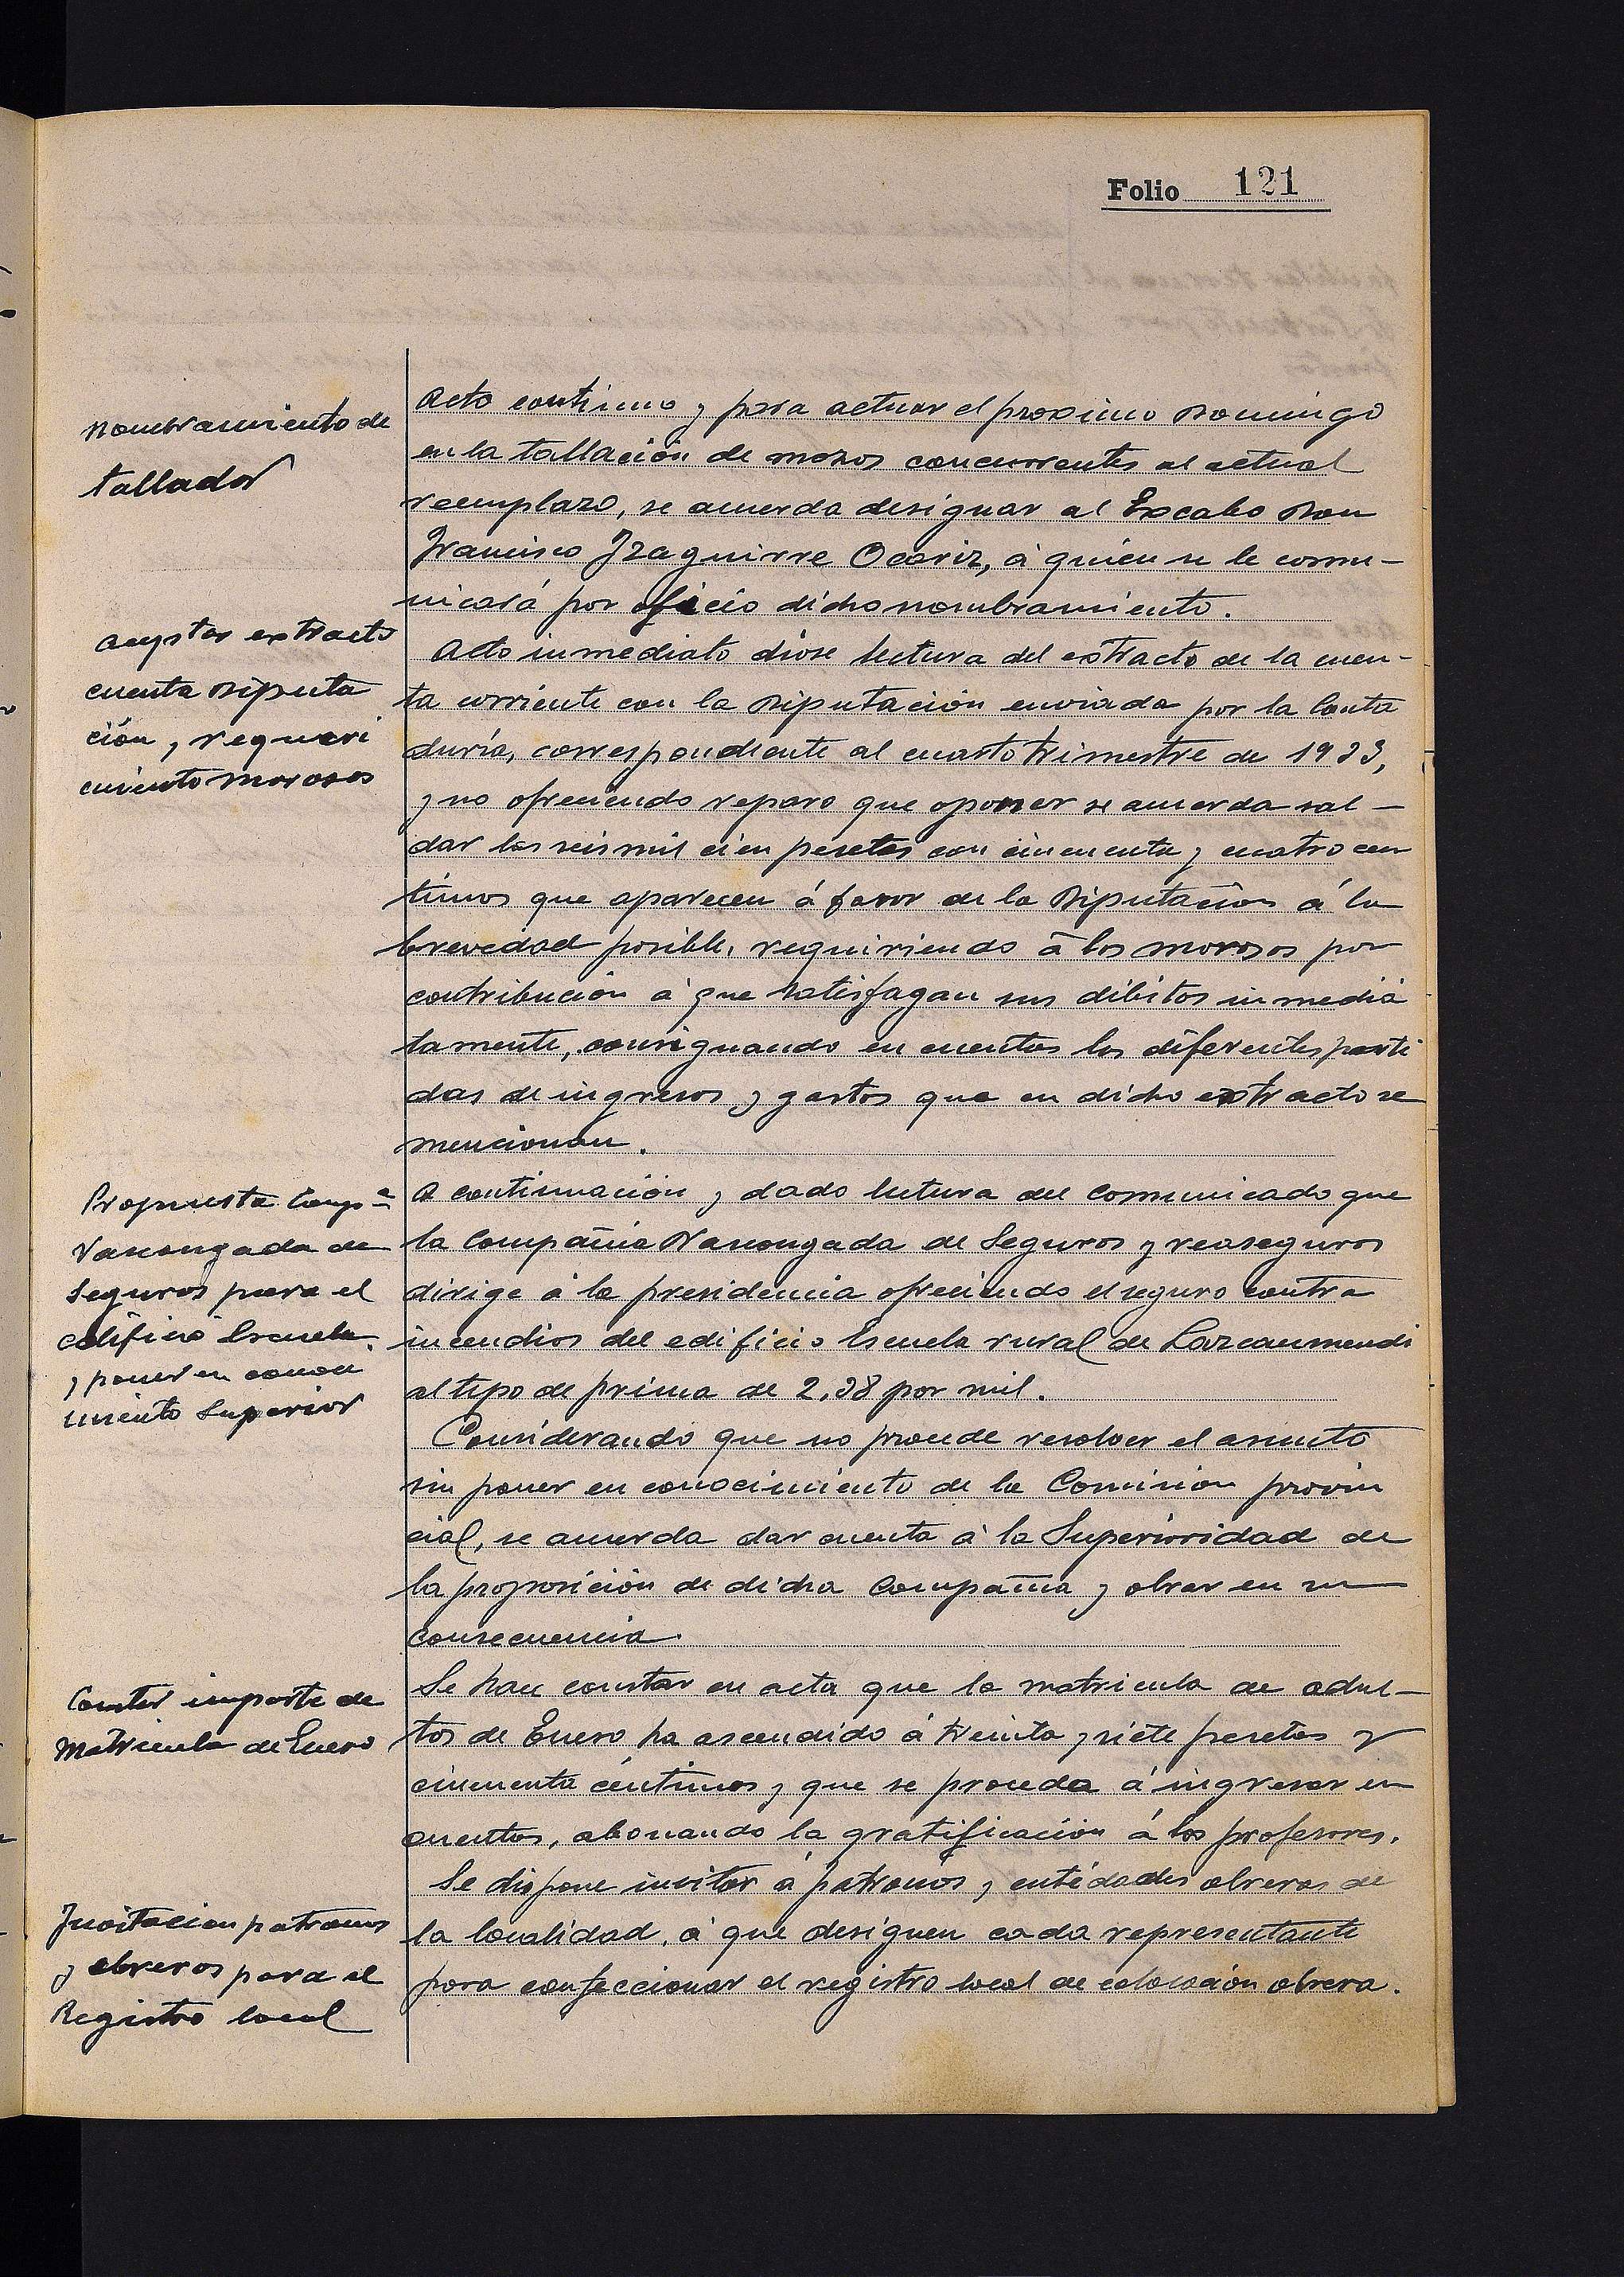 Folio 121
Nombramiento de
tallador
Acto continuo y para actuar el proximo Domingo
en la tallación de mozos concurrentes al actual
reemplazo, se acuerda designar al Excabo Don
Francisco Izaguirre Ocariz, á quien se le comu-
nicará por oficio dicho nombramiento.
Aceptar extracto
cuenta Diputa
ción, y requeri
miento morosos
Acto inmediato dióse lectura del extracto de la cuen-
ta corriente con la Diputación enviada por la Conta
duría, correspondiente al cuarto trimestre de 1933,
y no ofreciendo reparo que oponer se acuerda sal-
dar las seis mil cien pesetas con cincuenta y cuatro cen
timos que aparecen á favor de la Diputación á la
brevedad posible, requiriendo á los morosos por
contribución á que satisfagan sus débitos inmedia
tamente, consignando en cuentas las diferentes parti
das de ingresos y gastos que en dicho extracto se
mencionan.
Propuesta Compª
Vascongada de
Seguros para el
edificio Escuela.
y poner en conoci
miento Superior
A continuación y dado lectura del comunicado que
la Compañía Vascongada de Seguros y reaseguros
dirige á la presidencia ofreciendo el seguro contra
incendios del edificio Escuela rural de Lazcaumendi
al tipo de prima de 2,38 por mil.
Considerando que no procede resolver el asunto
sin poner en conocimiento de la Comision provin
cial, se acuerda dar cuenta á la Superioridad de
la proposición de dicha Compañía y obrar en su
consecuencia.
Constar importe de
Matricula de Enero
Se hace constar en acta que la matricula de adul-
tos de Enero ha ascendido á treinta y siete pesetas y
cincuenta céntimos y que se proceda á ingresar en
cuentas, abonando la gratificación á los profesores.
Invitacion patronos
y obreros para el
Registro local
Se dispone invitar á patronos y entidades obreras de
la localidad, á que designen cada representante
para confeccionar el registro local de colocación obrera.